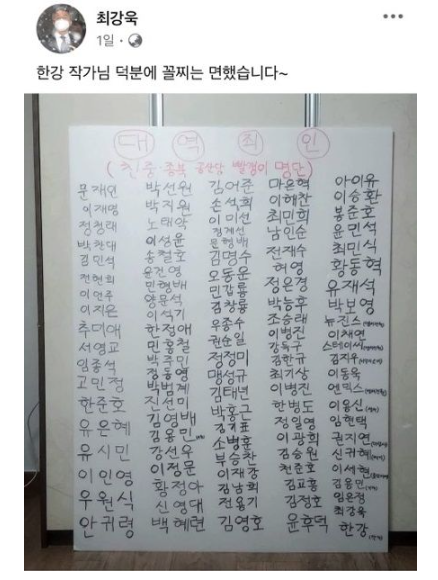 최강욱
1일
한강 작가님 덕분에 꼴찌는 면했습니다~
대 역 죄 인
(친중 종북 공산당 빨갱이 명단)
문재인
이재명
정청래
박찬대
김민석
전현희
이언주
이지은
추미애
서영교
임종석
고민정
한준호
유은혜
유시민
이인영
우원식
안귀령
박선원
박지원
노태악
이성윤
송철호
윤건영
민형배
양문석
이석기
한정애
민홍철
박주민
정동영
박범계
진선미
김영배
김용민
강선우
이정문
황정아
신영대
백혜련
김어준
손석희
이미선
정계선
문형배
김명수
오동운
민갑룡
김창룡
우종수
권순일
정정미
맹성규
김태년
박홍근
김기표
소병훈
부승찬
이재강
김남희
전용기
김영호
마은혁
이해찬
최민희
남인순
전재수
허영
정은경
박능후
조승래
이병진
강득구
김한규
최기상
이병진
한병도
정일영
이광희
김승원
천준호
김교흥
김정호
윤후덕
아이유
이승환
봉준호
윤민석
최민식
황동혁
유재석
박보영
뉴진스
이채연
스테이씨
김지우
이동욱
엔믹스
이용신
임현택
권지연
신귀혜
이세현
김용민
임은정
최강욱
한강